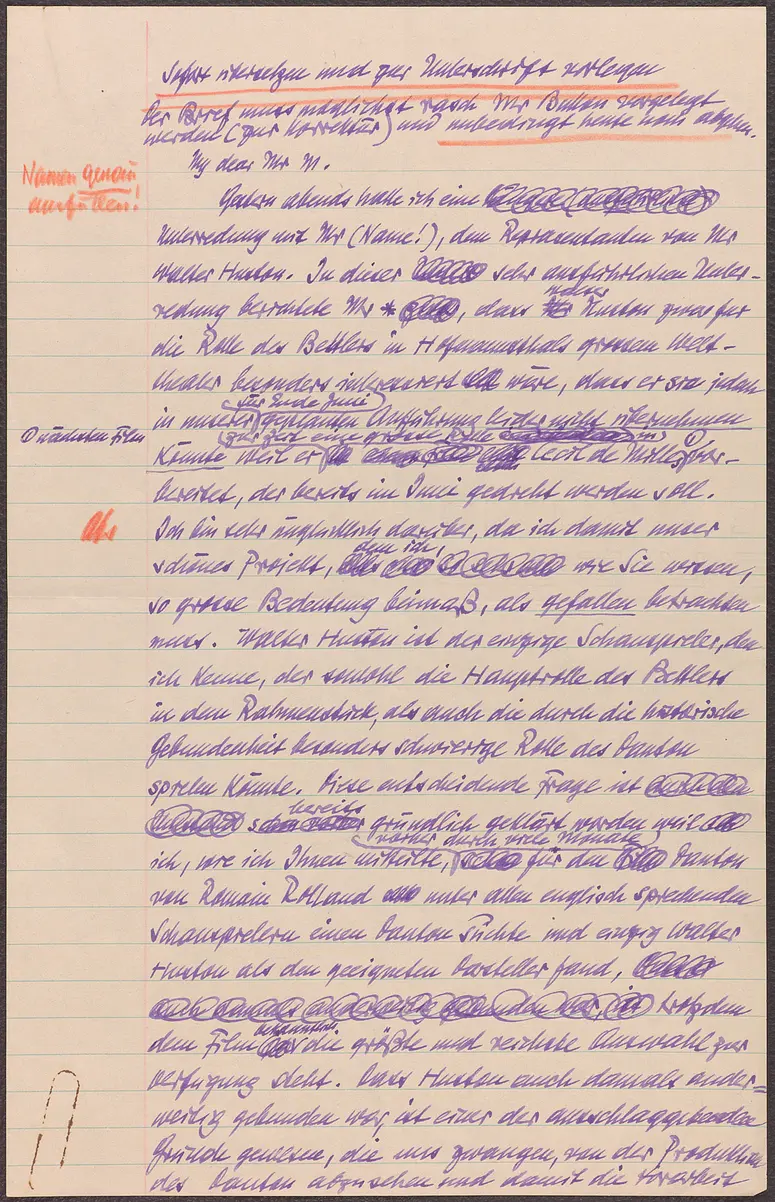 Sofort übersetzen und zur Unterschrift vorlegen
Der Brief muss möglichst rasch Mr Button vorgelegt
werden (zur Korrektur) und unbedingt heute noch abgehen.
My dear Mr M.
Namen genau
ausfüllen!
Gestern abends hatte ich eine
Unterredung mit Mr (Name!), dem Repräsentanten von Mr
Walter Huston. In dieser sehr ausführlichen Unter-
redung berichtete Mr *, dass Walter Huston zwar für
die Rolle des Bettlers in Hofmannsthals grossem Welt-
theater besonders interessiert wäre, dass er sie jedoch
in unserer für Ende Juni geplanten Aufführung leider nicht übernehmen
nächsten Film
könnte weil er zur Zeit eine grosse Rolle im Cecil de Mille vor-
bereitet, der bereits im Juni gedreht werden soll.
Ich bin sehr unglücklich darüber, da ich damit unser
schönes Projekt, dem ich, wie Sie wissen,
so grosse Bedeutung beimaß, als gefallen betrachten
muss. Walter Huston ist der einzige Schauspieler, den
ich kenne, der sowohl die Hauptrolle des Bettlers
in dem Rahmenstück, als auch die durch die historische
Gebundenheit besonders schwierige Rolle des Danton
spielen könnte. Diese entscheidende Frage ist
bereits gründlich geklärt worden weil
ich, wie ich Ihnen mitteilte, vorher durch viele Monate für den Danton
von Romain Rolland unter allen englisch sprechenden
Schauspielern einen Danton suchte und einzig Walter
Huston als den geeigneten Darsteller fand,
trotzdem
dem Film bekanntlich die größte und reichste Auswahl zur
Verfügung steht. Dass Huston auch damals ander=
weitig gebunden war, ist einer der ausschlaggebenden
Gründe gewesen, die uns zwangen, von der Produktion
des Danton abzusehen und damit die Vorarbeit